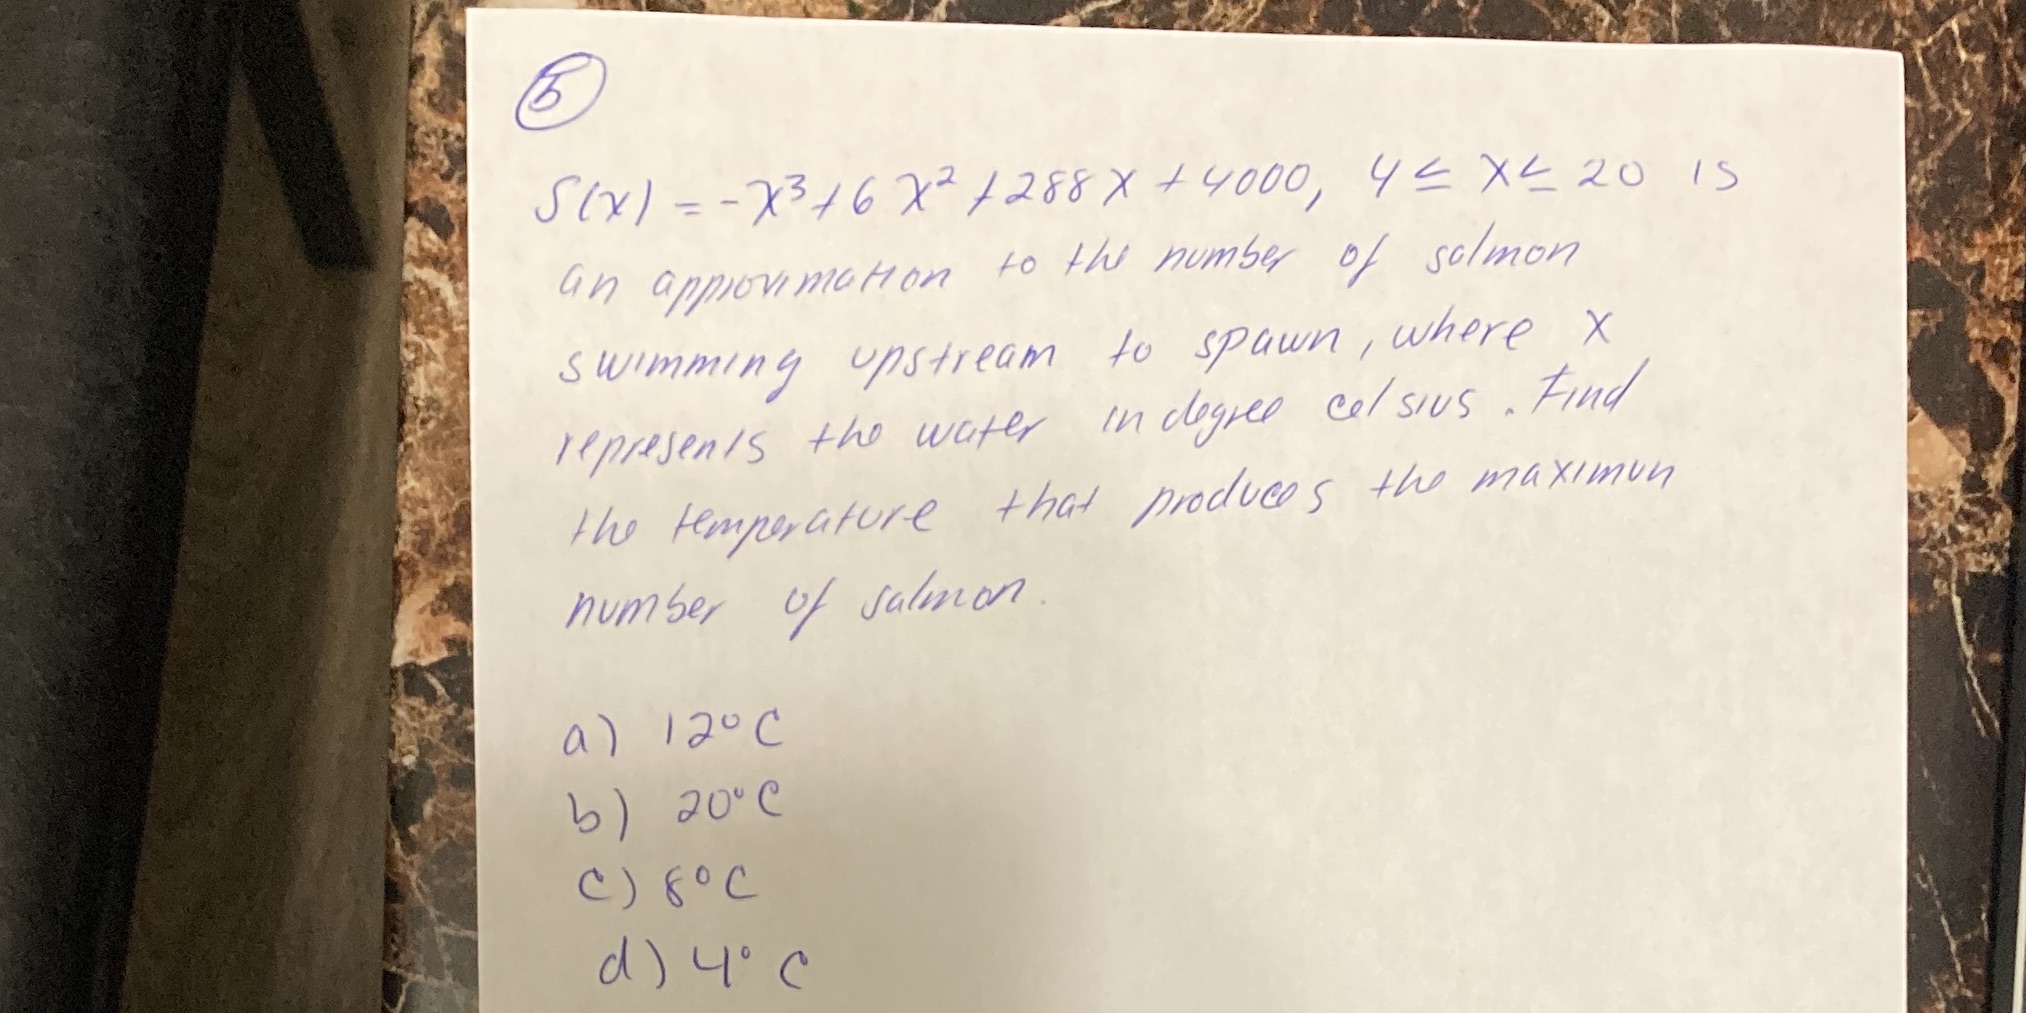 5
S(x) = -x³+6x²+288x+4000, 4 ≤ x ≤ 20 is
an approximation to the number of salmon
swimming upstream to spawn, where x
represents the water in degree celsius. Find
the temperature that produces the maximun
number of salmon.
a) 12°C
b) 20°C
c) 8°C
d) 4°C